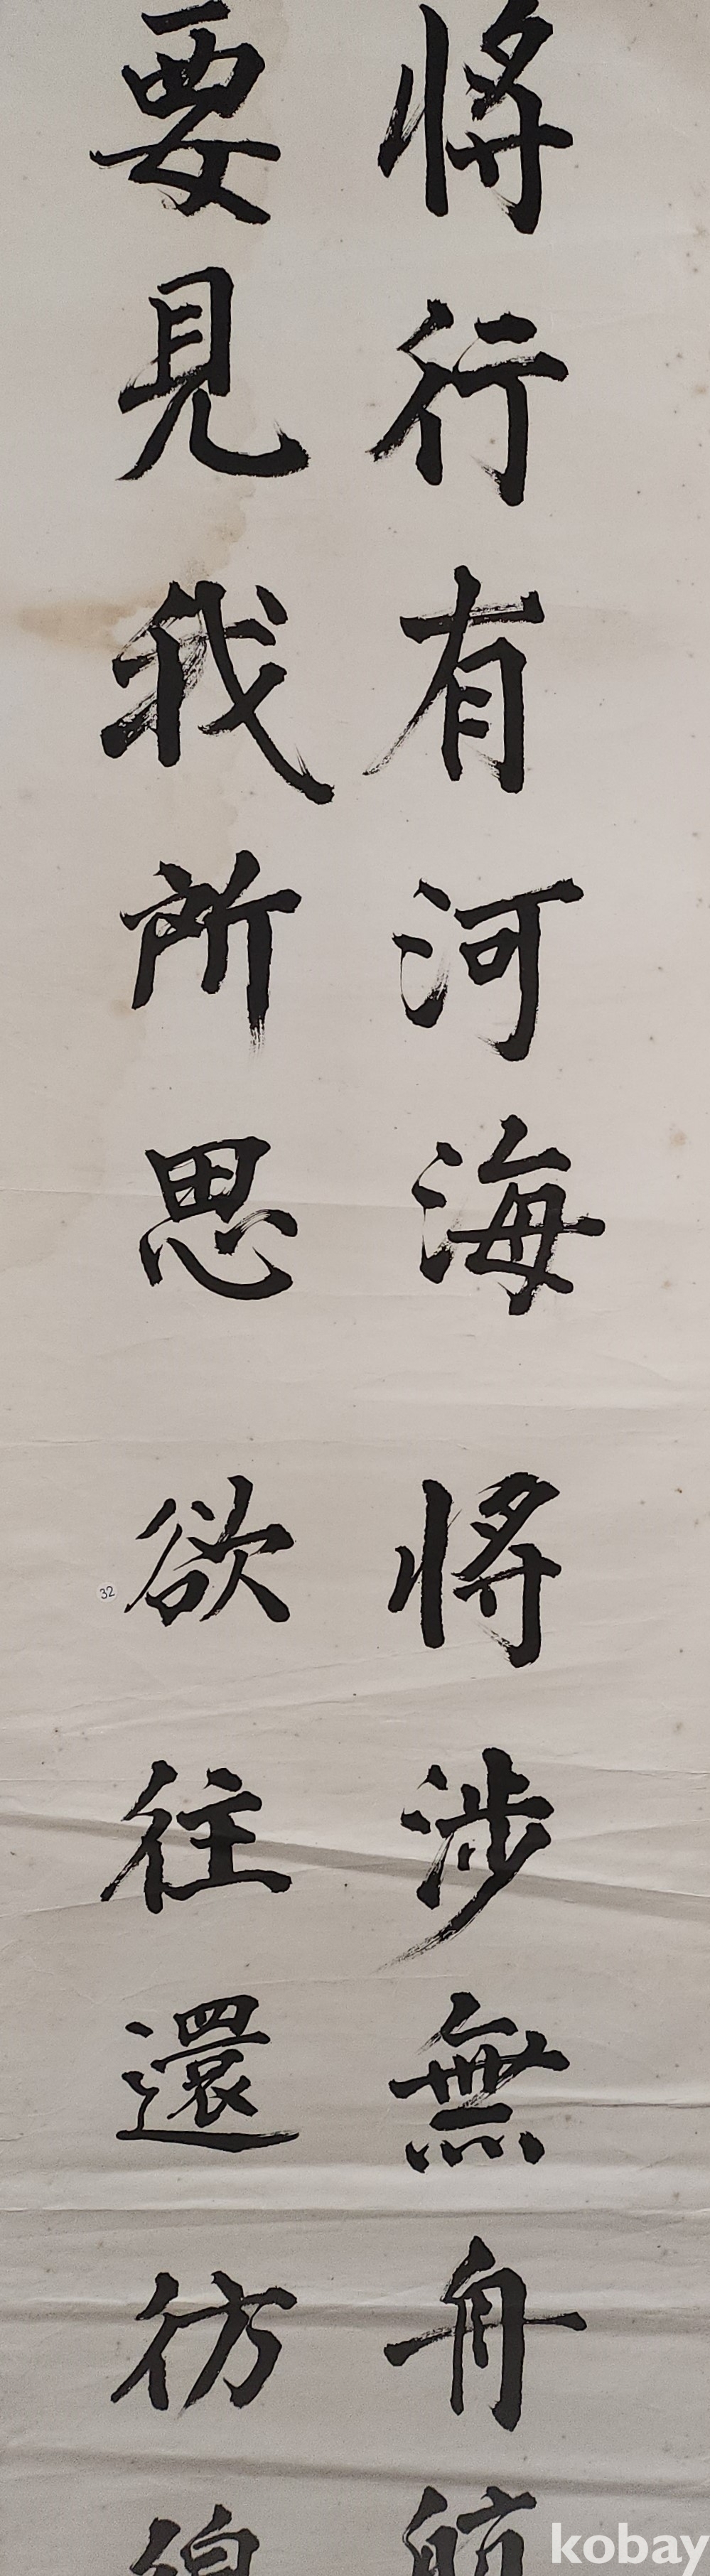 將行有河海將涉無舟航
要見我所思欲往還彷徨
32
kobay